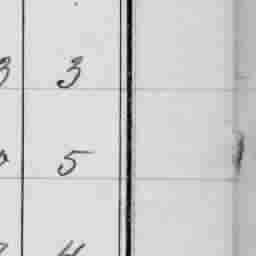 3 3
5
4